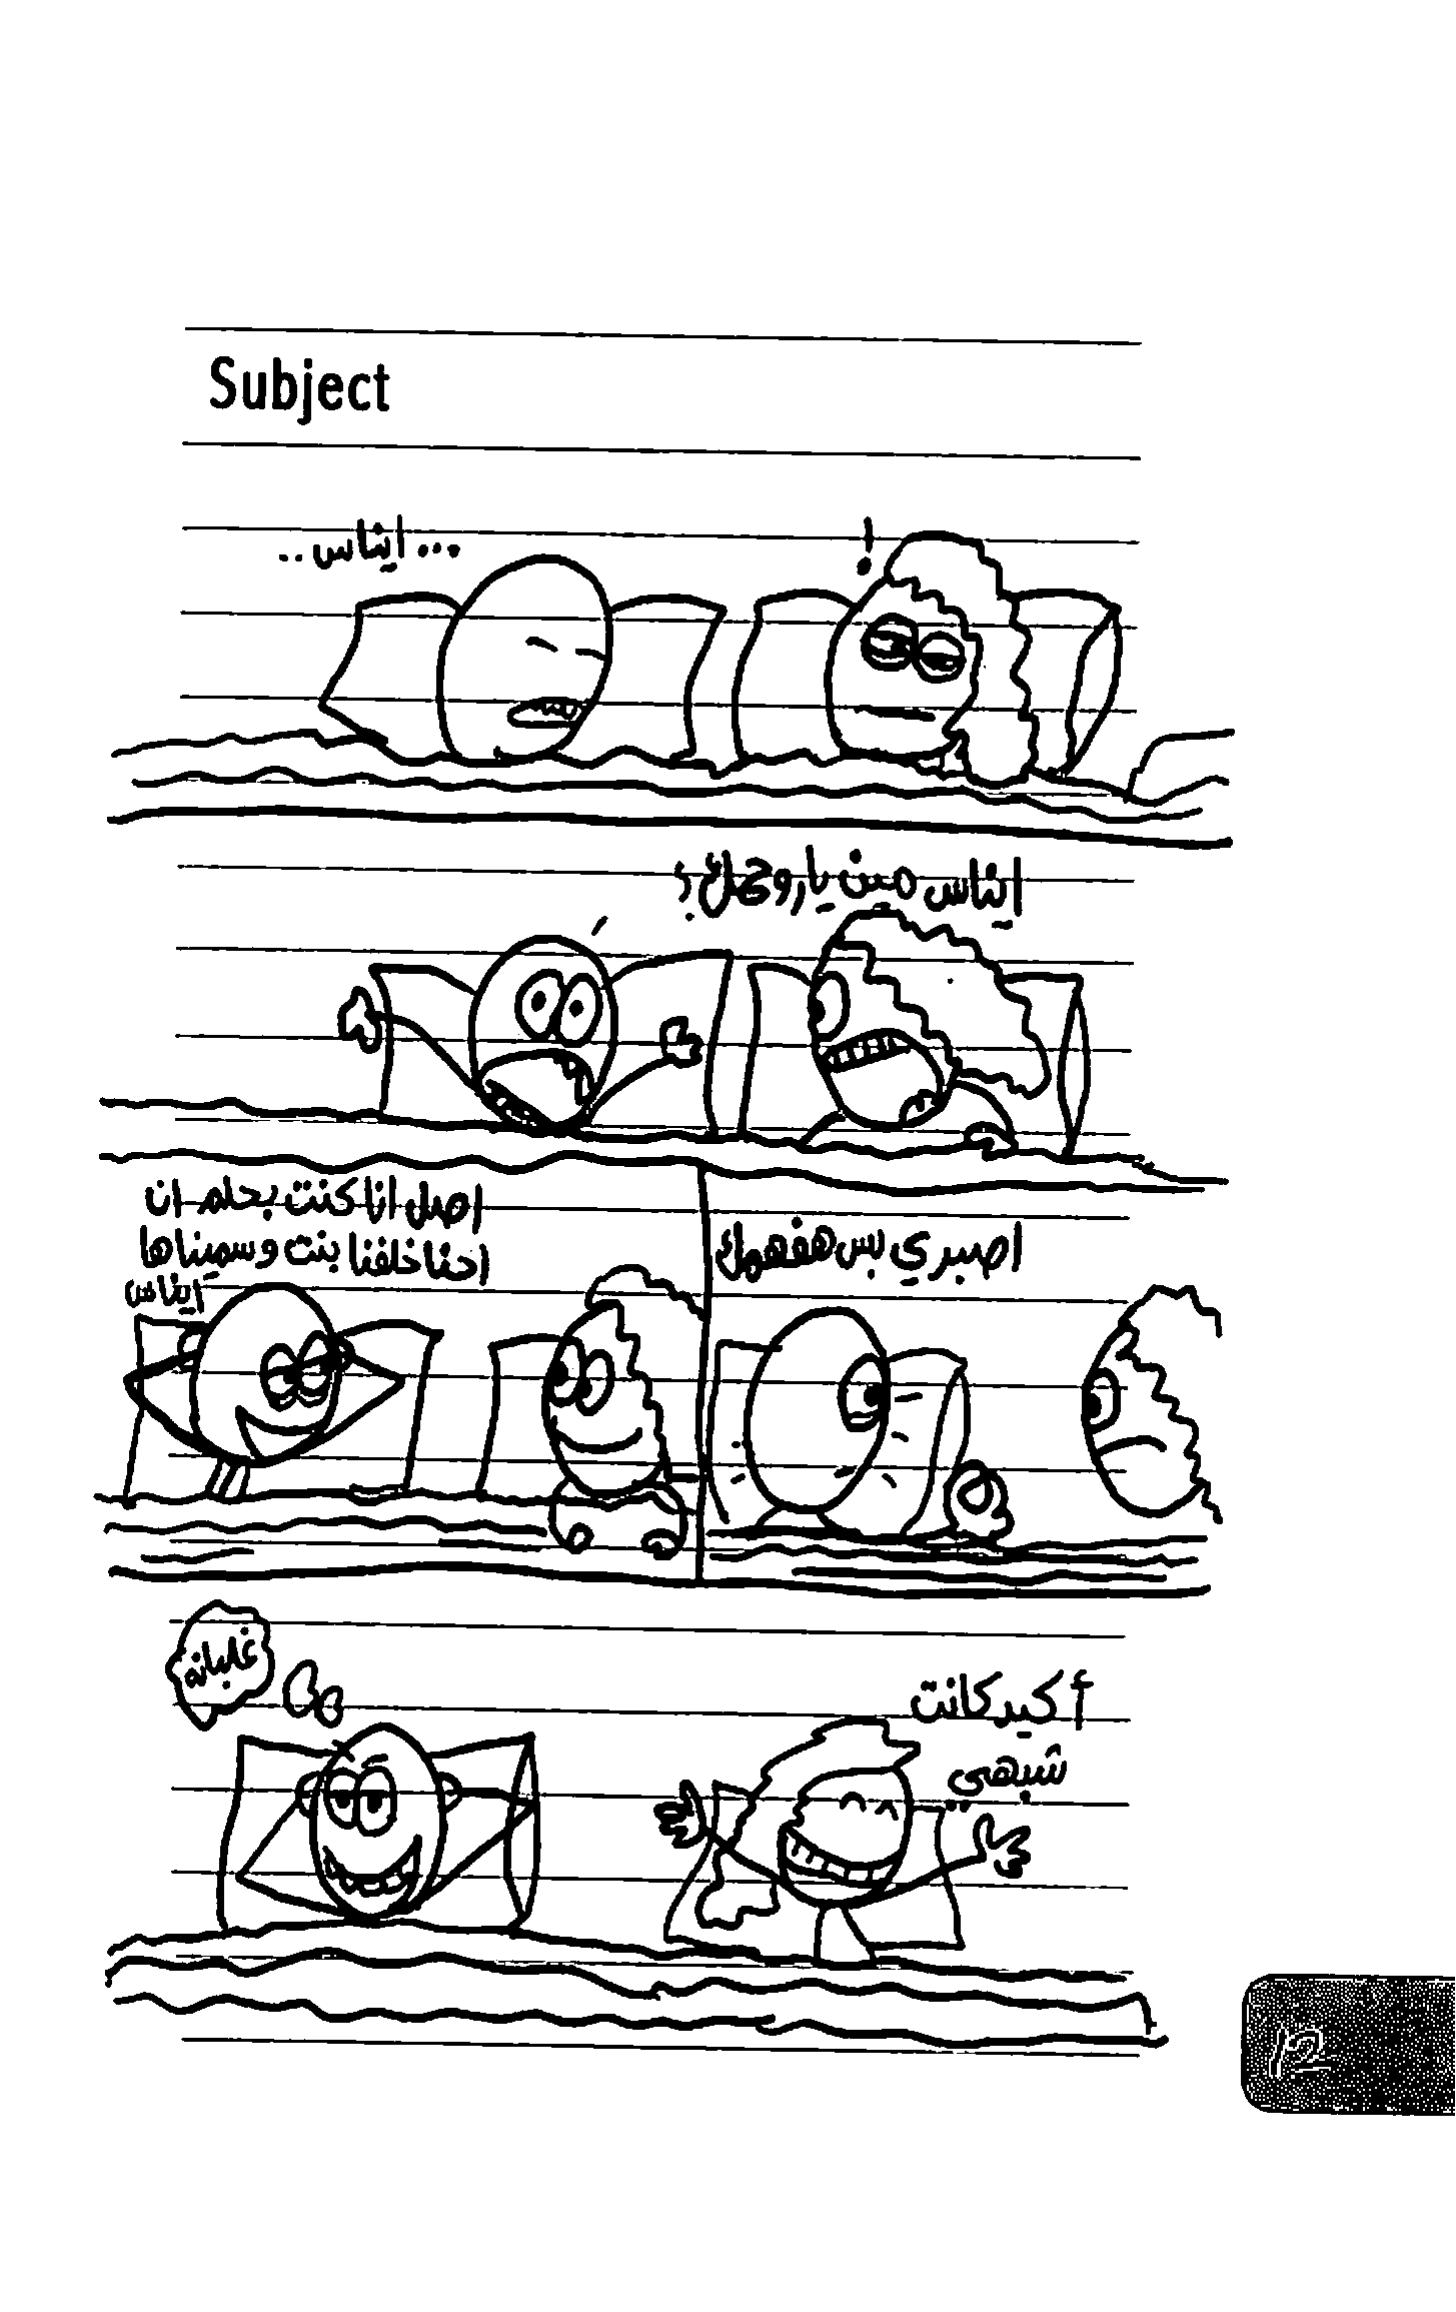 Subject
... ايناس ..
!
ايناس مين يا روح امك ؟
اصبري بس هفهمك
اصل انا كنت بحلم ان
احنا خلفنا بنت وسميناها
ايناس
أكيد كانت
شبهي
غلبانه
12